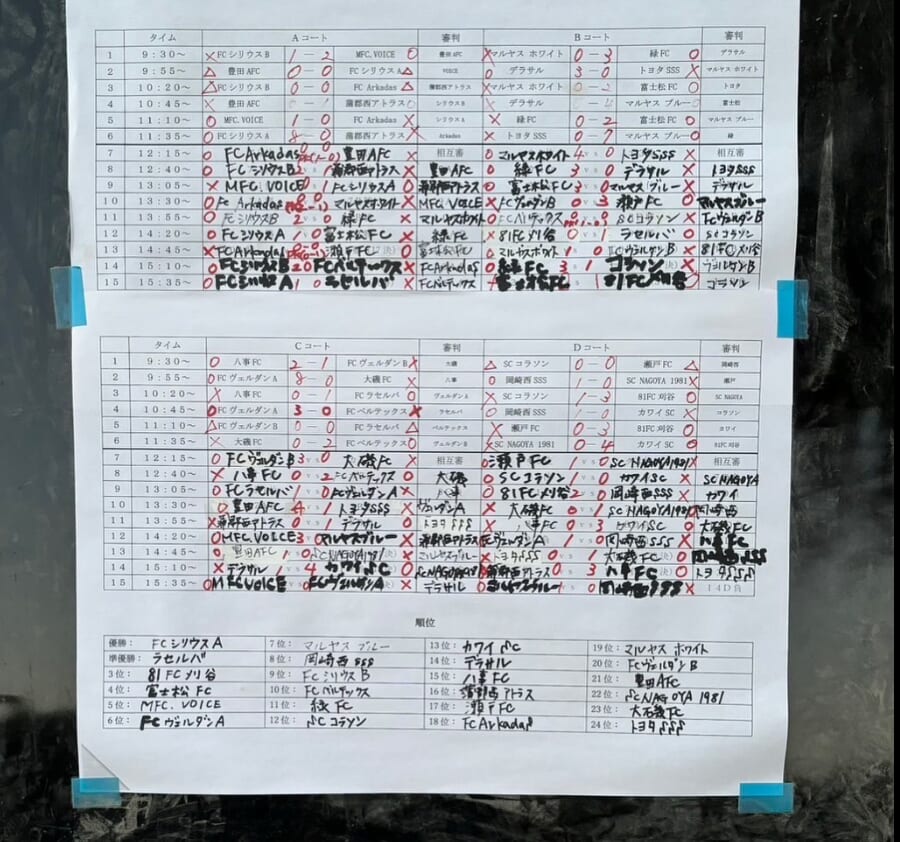 タイム Aコート 審判 Bコート 審判
1 9:30～ × FCシリウスB 1－2 MFC.VOICE ○ 豊田AFC × マルヤス ホワイト 0－3 緑FC ○ デラサル
2 9:55～ △ 豊田AFC 0－0 FCシリウスA △ VOICE ○ デラサル 3－0 トヨタSSS × マルヤス ホワイト
3 10:20～ △ FCシリウスB 0－0 FC Arkadas △ 蒲郡西アトラス × マルヤス ホワイト 0－2 富士松FC ○ トヨタ
4 10:45～ × 豊田AFC 0－1 蒲郡西アトラス ○ シリウスB × デラサル 0－4 マルヤス ブルー ○ 富士松
5 11:10～ ○ MFC.VOICE 1－0 FC Arkadas × シリウスA × 緑FC 0－2 富士松FC ○ マルヤス ブルー
6 11:35～ ○ FCシリウスA 8－0 蒲郡西アトラス × Arkadas × トヨタSSS 0－7 マルヤス ブルー ○ 緑
7 12:15～ ○ FC Arkadas 0 0 豊田AFC × 相互審 ○ マルヤスホワイト 4 vs 0 トヨタSSS × 相互審
8 12:40～ ○ FCシリウスB 2 1 蒲郡西アトラス × 豊田AFC ○ 緑FC 3 0 デラサル × トヨタSSS
9 13:05～ × MFC.VOICE 0 1 FCシリウスA ○ 蒲郡西アトラス ○ 富士松FC 3 0 マルヤス ブルー × デラサル
10 13:30～ ○ FC Arkadas 0－0 マルヤスホワイト × MFC.VOICE × FCヴェルダンB 0 3 瀬戸FC ○ マルヤスブルー
11 13:55～ ○ FCシリウスB 2 0 緑FC × マルヤスホワイト ○ FCベルテックス 0 0 SCコラソン × FCヴェルダンB
12 14:20～ ○ FCシリウスA 1 0 富士松FC × 緑FC × 81FC刈谷 0 1 ラセルバ ○ SCコラソン
13 14:45～ × FC Arkadas 0－0 瀬戸FC ○ 富士松FC ○ マルヤスホワイト 1 0 FCヴェルダンB × 81FC刈谷
14 15:10～ ○ FCシリウスB 2 0 FCベルテックス × FC Arkadas ○ 緑FC 3 1 コラソン × ヴェルダンB
15 15:35～ ○ FCシリウスA 1 0 ラセルバ × FCベルテックス × 富士松FC 1 81FC刈谷 ○ コラソン
タイム Cコート 審判 Dコート 審判
1 9:30～ ○ 八事FC 2－1 FCヴェルダンB × 大磯 △ SCコラソン 0－0 瀬戸FC △ 岡崎西
2 9:55～ ○ FCヴェルダンA 8－0 大磯FC × 八事 ○ 岡崎西SSS 1－0 SC NAGOYA 1981 × 瀬戸
3 10:20～ × 八事FC 0－1 FCラセルバ ○ ヴェルダンA × SCコラソン 1－3 81FC刈谷 ○ SC NAGOYA
4 10:45～ ○ FCヴェルダンA 3－0 FCベルテックス × ラセルバ ○ 岡崎西SSS 1－0 カワイSC × コラソン
5 11:10～ △ FCヴェルダンB 0－0 FCラセルバ △ ベルテックス × 瀬戸FC 0－3 81FC刈谷 ○ カワイ
6 11:35～ × 大磯FC 0－2 FCベルテックス ○ ヴェルダンB × SC NAGOYA 1981 0－4 カワイSC ○ 81FC刈谷
7 12:15～ ○ FCヴェルダンB 3 vs 0 大磯FC × 相互審 ○ 瀬戸FC 1 vs 0 SC NAGOYA1981 × 相互審
8 12:40～ × 八事FC 0 vs 2 FCベルテックス ○ 大磯 ○ SCコラソン 1 0 カワイSC × SC NAGOYA
9 13:05～ ○ FCラセルバ 1 0 FCヴェルダンA × 八事 ○ 81FC刈谷 2 0 岡崎西SSS × カワイ
10 13:30～ ○ 豊田AFC 4 1 トヨタSSS × ヴェルダンA × 大磯FC 0 1 SC NAGOYA1981 ○ 岡崎西SSS
11 13:55～ × 蒲郡西アトラス 0 1 デラサル ○ トヨタSSS × 八事FC 0 3 カワイSC ○ 大磯FC
12 14:20～ ○ MFC.VOICE 3 0 マルヤスブルー × 蒲郡西アトラス ○ FCヴェルダンA 1 0 岡崎西SSS × 八事FC
13 14:45～ ○ 豊田AFC 1 0 SC NAGOYA1981 × マルヤスブルー × トヨタSSS 1 大磯FC ○ 岡崎西SSS
14 15:10～ × デラサル 4 カワイSC ○ SC NAGOYA1981 蒲郡西アトラス 八事FC ○ トヨタSSS
15 15:35～ ○ MFC VOICE 1 0 FCヴェルダンA × デラサル ○ マルヤスブルー 0 岡崎西SSS × 14D負
順位
優勝： FCシリウスA 7位： マルヤス ブルー 13位： カワイSC 19位： マルヤス ホワイト
準優勝： ラセルバ 8位： 岡崎西SSS 14位： デラサル 20位： FCヴェルダンB
3位： 81FC刈谷 9位： FCシリウスB 15位： 八事FC 21位： 豊田AFC
4位： 富士松FC 10位： FCベルテックス 16位： 蒲郡西アトラス 22位： SC NAGOYA 1981
5位： MFC. VOICE 11位： 緑FC 17位： 瀬戸FC 23位： 大磯FC
6位： FCヴェルダンA 12位： SCコラソン 18位： FC Arkadas 24位： トヨタSSS